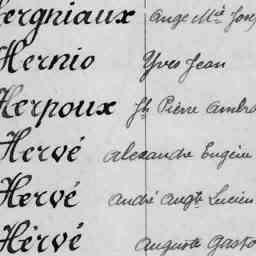 ergniaux Ange Mie Jose
Hernio Yves Jean
Herpoux Jh Pierre Ambro
Hervé Alexandre Eugène
Hervé André Augte Lucien
Hervé Auguste Gasto